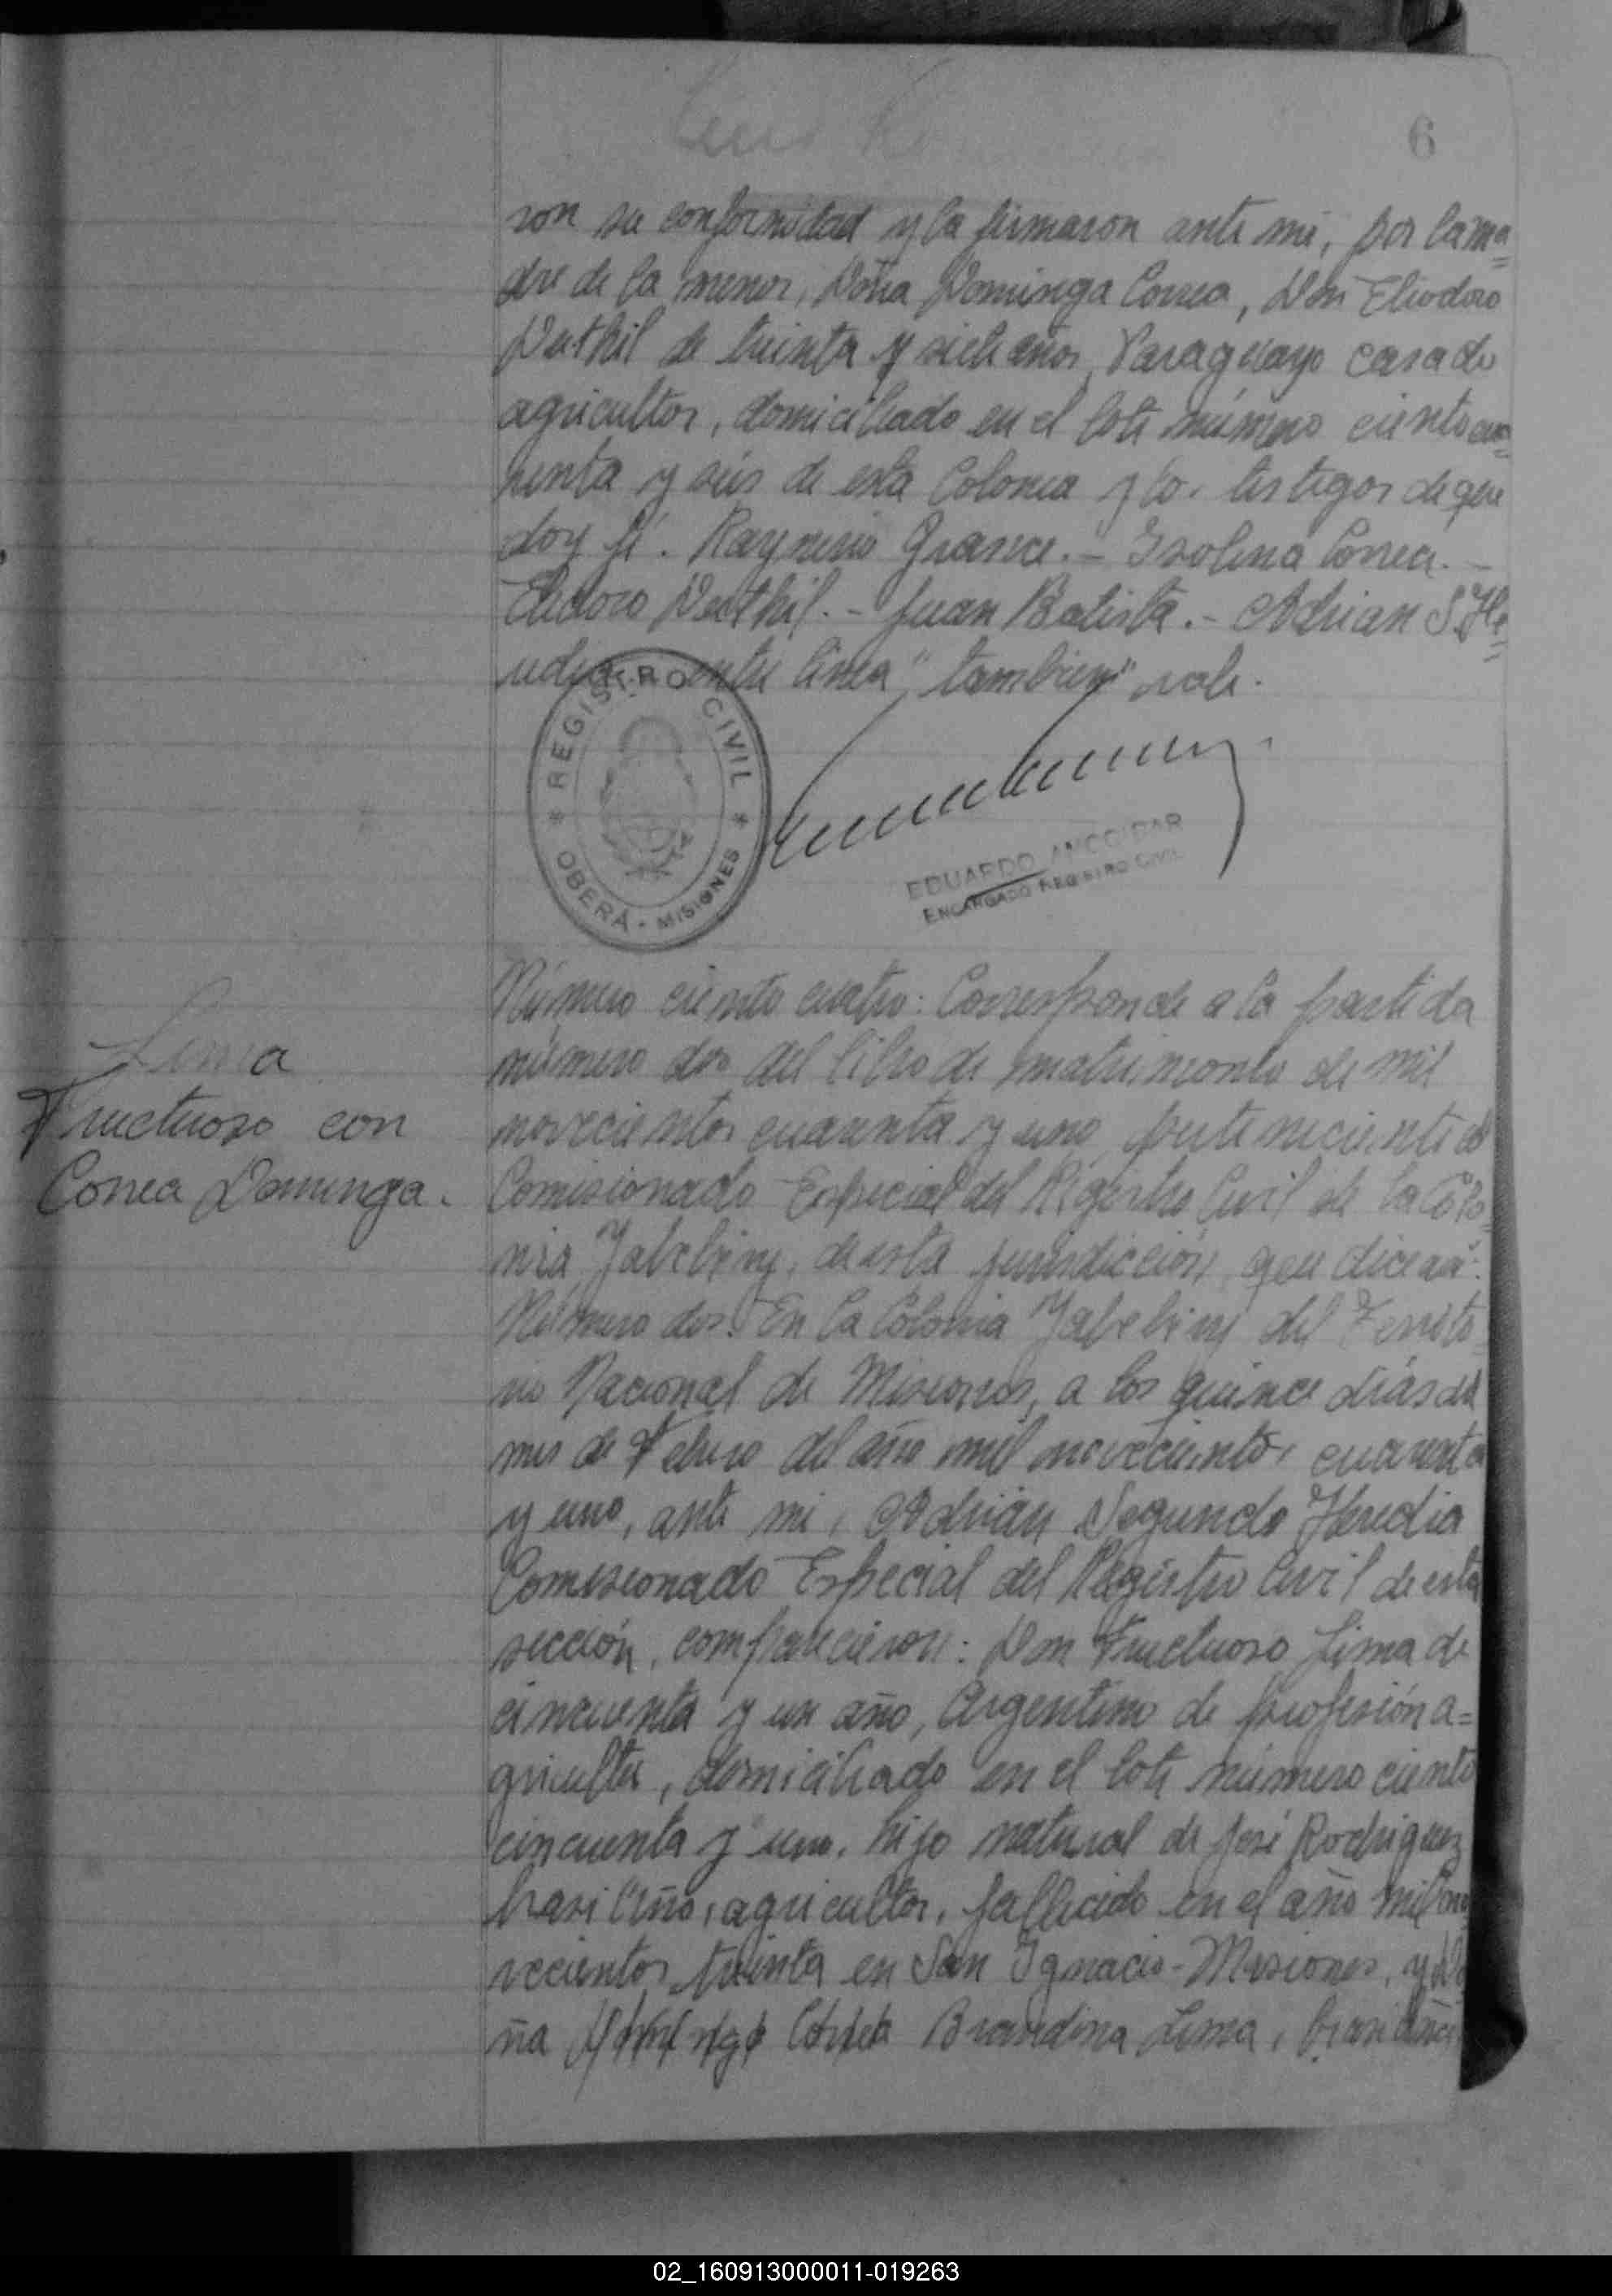 6
ron su conformidad y la firmaron ante mi, por la ma=
dre de la menor, Doña Dominga Correa, Don Eliodoro
de treinta y siete años, Paraguayo casado
agricultor, domiciliado en el lote número ciento cua=
renta y seis de esta Colonia y los testigos de que
doy fé. Raynerio Grance.- Isolina Correa.-
Eliodoro Juan Batista.- Adrian S. He=
redia entre linea "tambien" vale.
REGISTRO CIVIL
OBERÁ - MISIONES
EDUARDO
ENCARGADO REGISTRO CIVIL
Lima
Fructuoso con
Correa Dominga.
Número ciento cuatro: Corresponde a la partida
número dos del libro de matrimonio de mil
novecientos cuarenta y uno, perteneciente al
Comisionado Especial del Registro Civil de la Colo=
nia Yabebiry, de esta jurisdicción, que dice así:
Número dos: En la Colonia Yabebiry del Territo=
rio Nacional de Misiones, a los quince días del
mes de Febrero del año mil novecientos cuarenta
y uno, ante mi, Adrián Segundo Heredia
Comisionado Especial del Registro Civil de esta
sección, comparecieron: Don Fructuoso Lima de
cincuenta y un año, Argentino de profesión a=
gricultor, domiciliado en el lote número ciento
cincuenta y uno, hijo natural de José Rodriguez
brasileño, agricultor, fallecido en el año mil no
vecientos treinta en San Ignacio-Misiones, y Do
ña Brandina Lima, brasileña
02_160913000011-019263